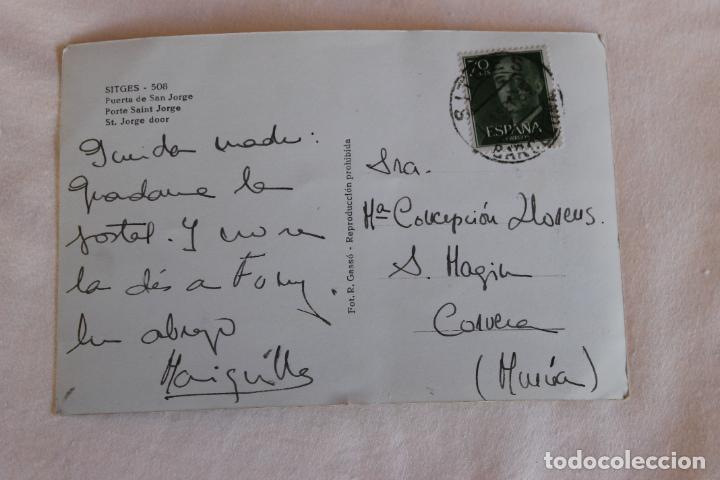 SITGES - 508
Puerta de San Jorge
Porte Saint Jorge
St. Jorge door
Querida madre:
Guardame la
postal. Y no se
la dés a Fony.
Un abrazo
Mariquilla
Fot. R. Gassó - Reproducción prohibida
70
CTS
ESPAÑA
CORREOS
Sra.
Mª Concepción Llorens.
S. Magin
Corvera
(Murcia)
todocoleccion.net